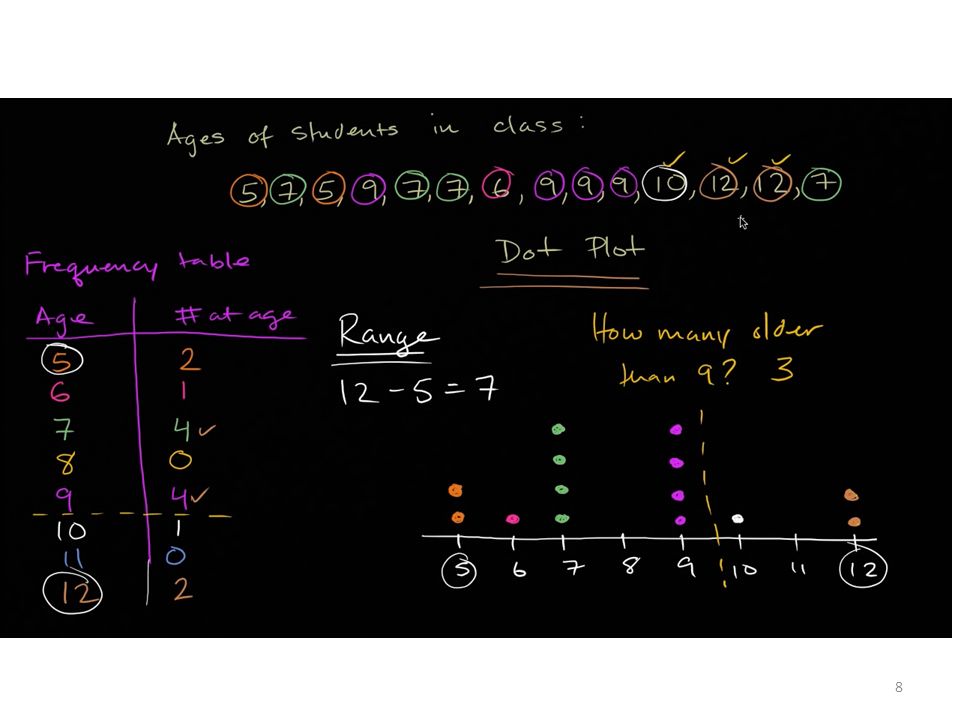 Ages of students in class:
5, 7, 5, 9, 7, 7, 6, 9, 9, 9, 10, 12, 12, 7
Frequency table
Age # at age
5 2
6 1
7 4
8 0
9 4
10 1
11 0
12 2
Range
12 - 5 = 7
Dot Plot
How many older
than 9? 3
5 6 7 8 9 10 11 12
8